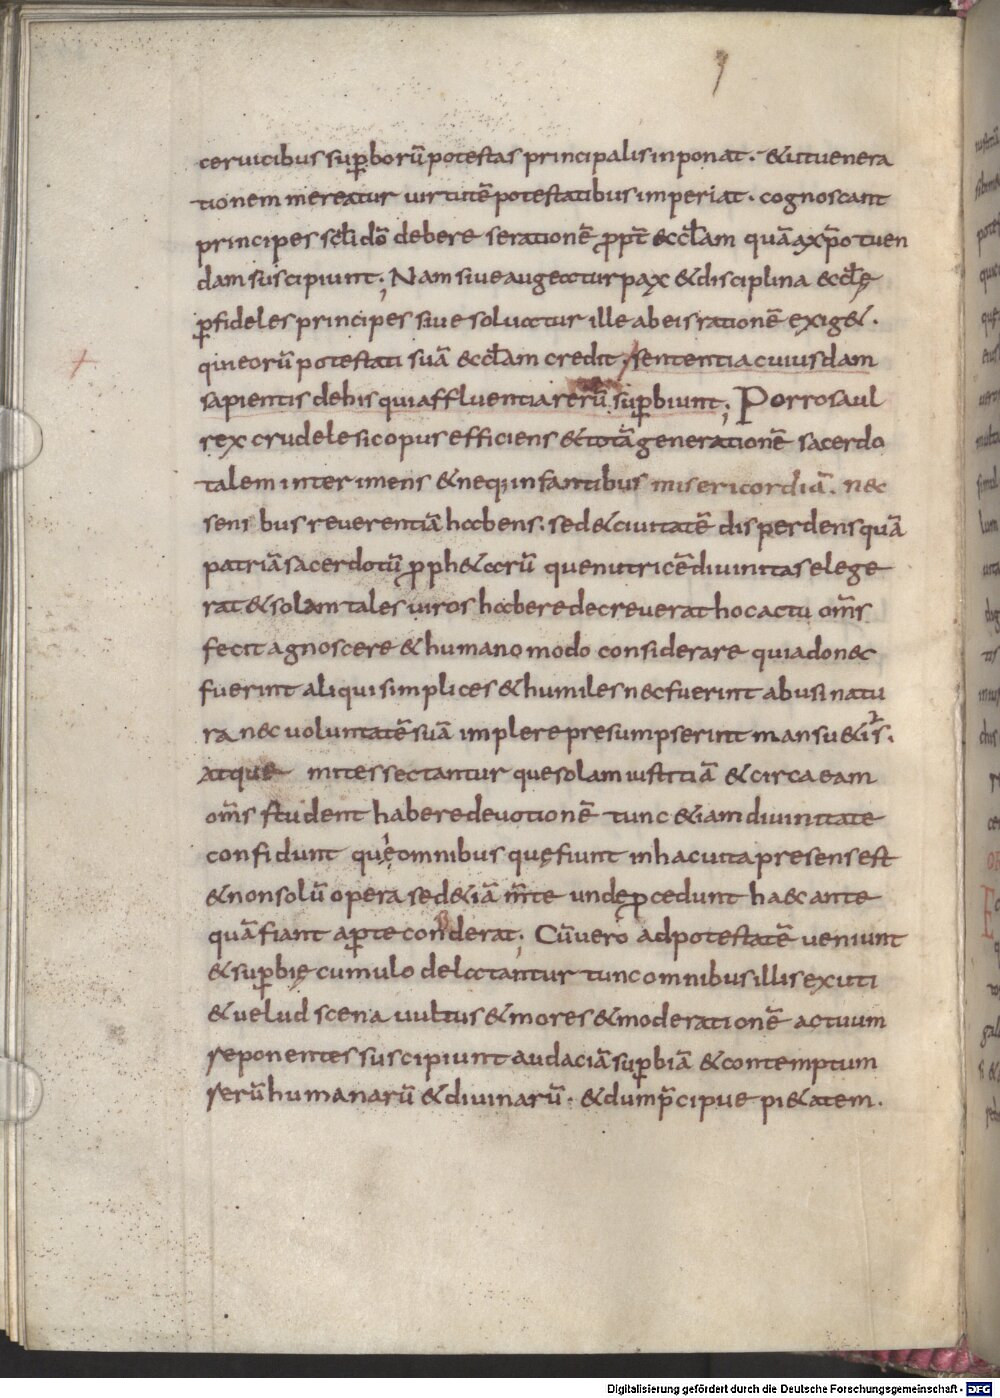 ceruicibus sup̱borū potestas principalis inponat. & ut uenera
tionem mereatur uirtutē potestatibus imperiat. cognoscant
principes scłi dō debere se rationē ꝓpt̄ ęccłam quā a xp̄o tuen
dam suscipiunt; Nam siue augeatur pax & disciplina ęccłę
ꝑ fideles principes siue soluatur ille ab eis rationē exig&.
qui eorū potestati suā ęccłam credit; sententia cuiusdam
sapientis de his qui affluentia rerū suꝑbiunt; Porro saul
rex crudele sic opus efficiens & totā generationē sacerdo
talem interimens & neq; infantibus misericordiā. nec
senibus reuerentiā habens. sed & ciuitatē disperdens quā
patriā sacerdotū ꝓph&arū que nutricē diuinitas elege
rat & solam tales uiros habere decreuerat hoc actu om̄s
fecit agnoscere & humano modo considerare quia donec
fuerint aliqui simplices & humiles nec fuerint abusi natu
ra nec uoluntatē suā implere presumpserint mansu&is.
atque mites sectantur que solam iustitiā & circa eam
om̄s student habere deuotionē tunc &iam diuinitate
confidunt quę omnibus quę fiunt in hac uita presens est
& non solū opera sed &iā m̄te unde ꝓcedunt haec ante
quā fiant aꝑte conderat; Cū uero ad potestatē ueniunt
& suꝑbię cumulo delatantur tunc omnibus illis exuti
& uelud scena uultus & mores & moderationē actuum
reponentes suscipiunt audaciā suꝑbiā & contemptum
rerū humanarū & diuinarū. & dum p̄cipue pi&atem.
Digitalisierung gefördert durch die Deutsche Forschungsgemeinschaft - DFG